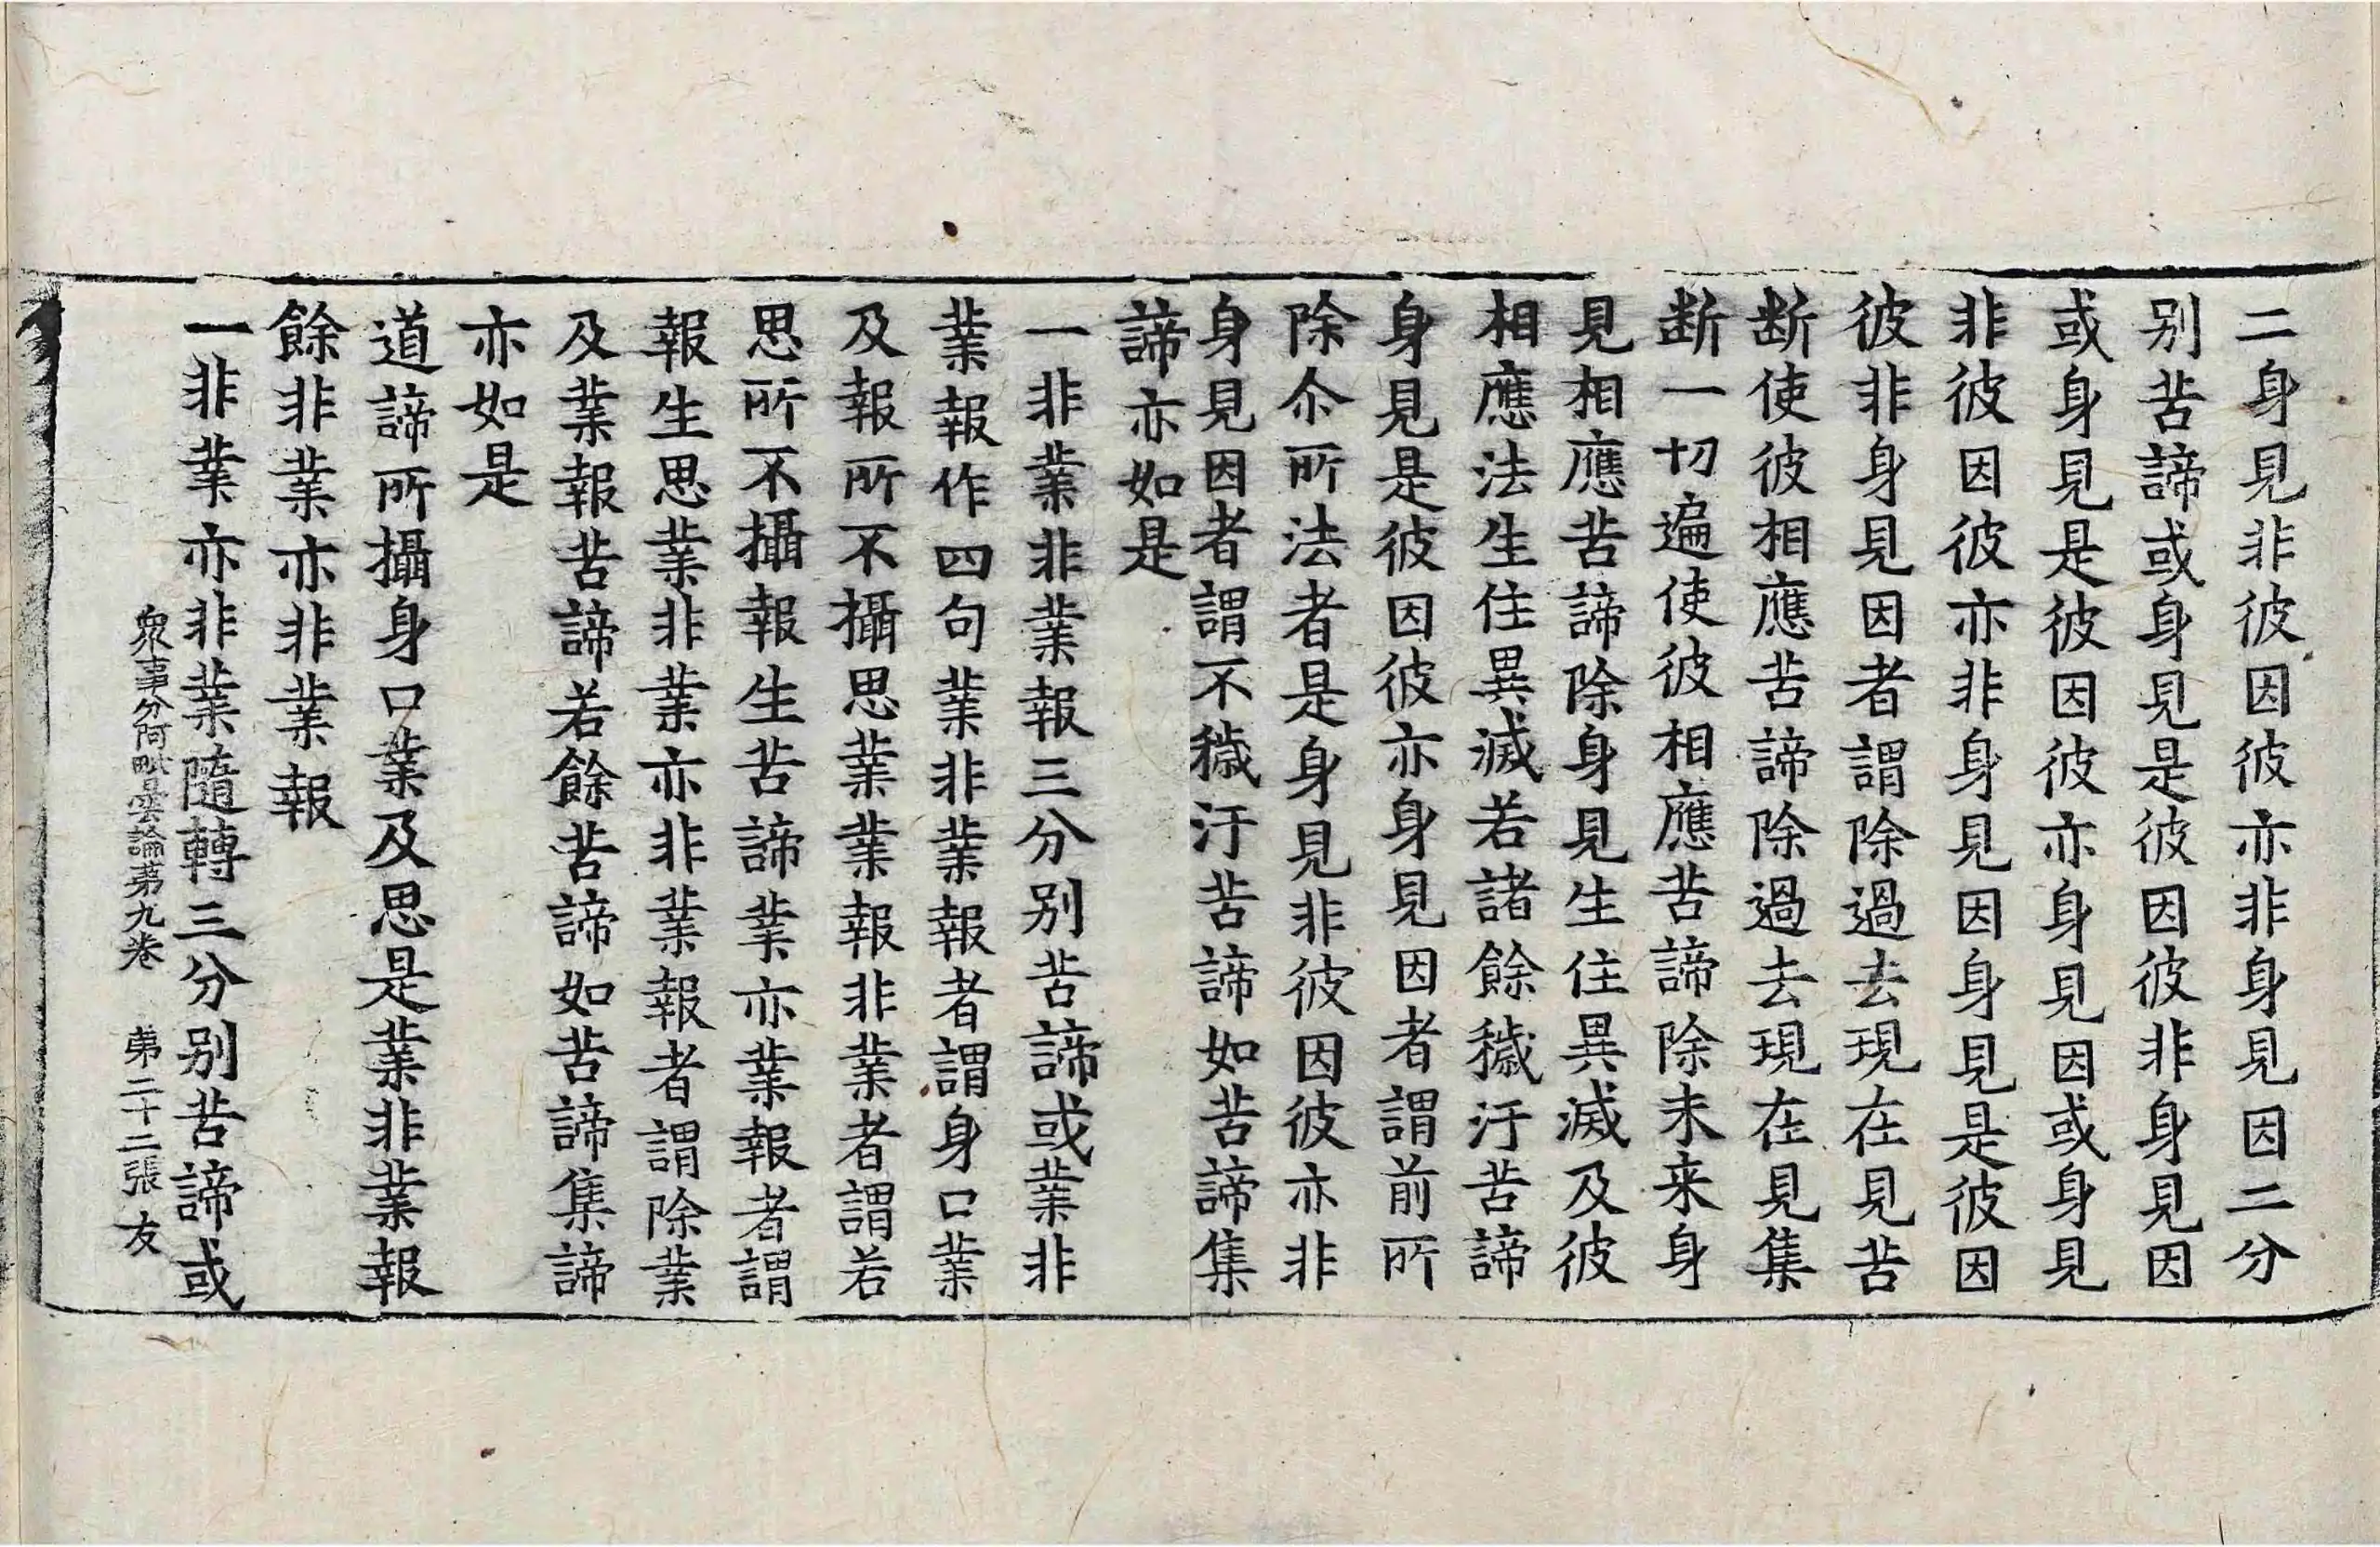 二身見非彼因彼亦非身見因二分
别苦諦或身見是彼因彼非身見因
或身見是彼因彼亦身見因或身見
非彼因彼亦非身見因身見是彼因
彼非身見因者謂除過去現在見苦
断使彼相應苦諦除過去現在見集
断一切遍使彼相應苦諦除未来身
見相應苦諦除身見生住異滅及彼
相應法生住異滅若諸餘穢汙苦諦
身見是彼因彼亦身見因者謂前所
除尒所法者是身見非彼因彼亦非
身見因者謂不穢汙苦諦如苦諦集
諦亦如是
一非業非業報三分别苦諦或業非
業報作四句業非業報者謂身口業
及報所不攝思業業報非業者謂若
思所不攝報生苦諦業亦業報者謂
報生思業非業亦非業報者謂除業
及業報苦諦若餘苦諦如苦諦集諦
亦如是
道諦所攝身口業及思是業非業報
餘非業亦非業報
一非業亦非業隨轉三分别苦諦或
衆事分阿毗曇論苐九卷 苐二十二張 友